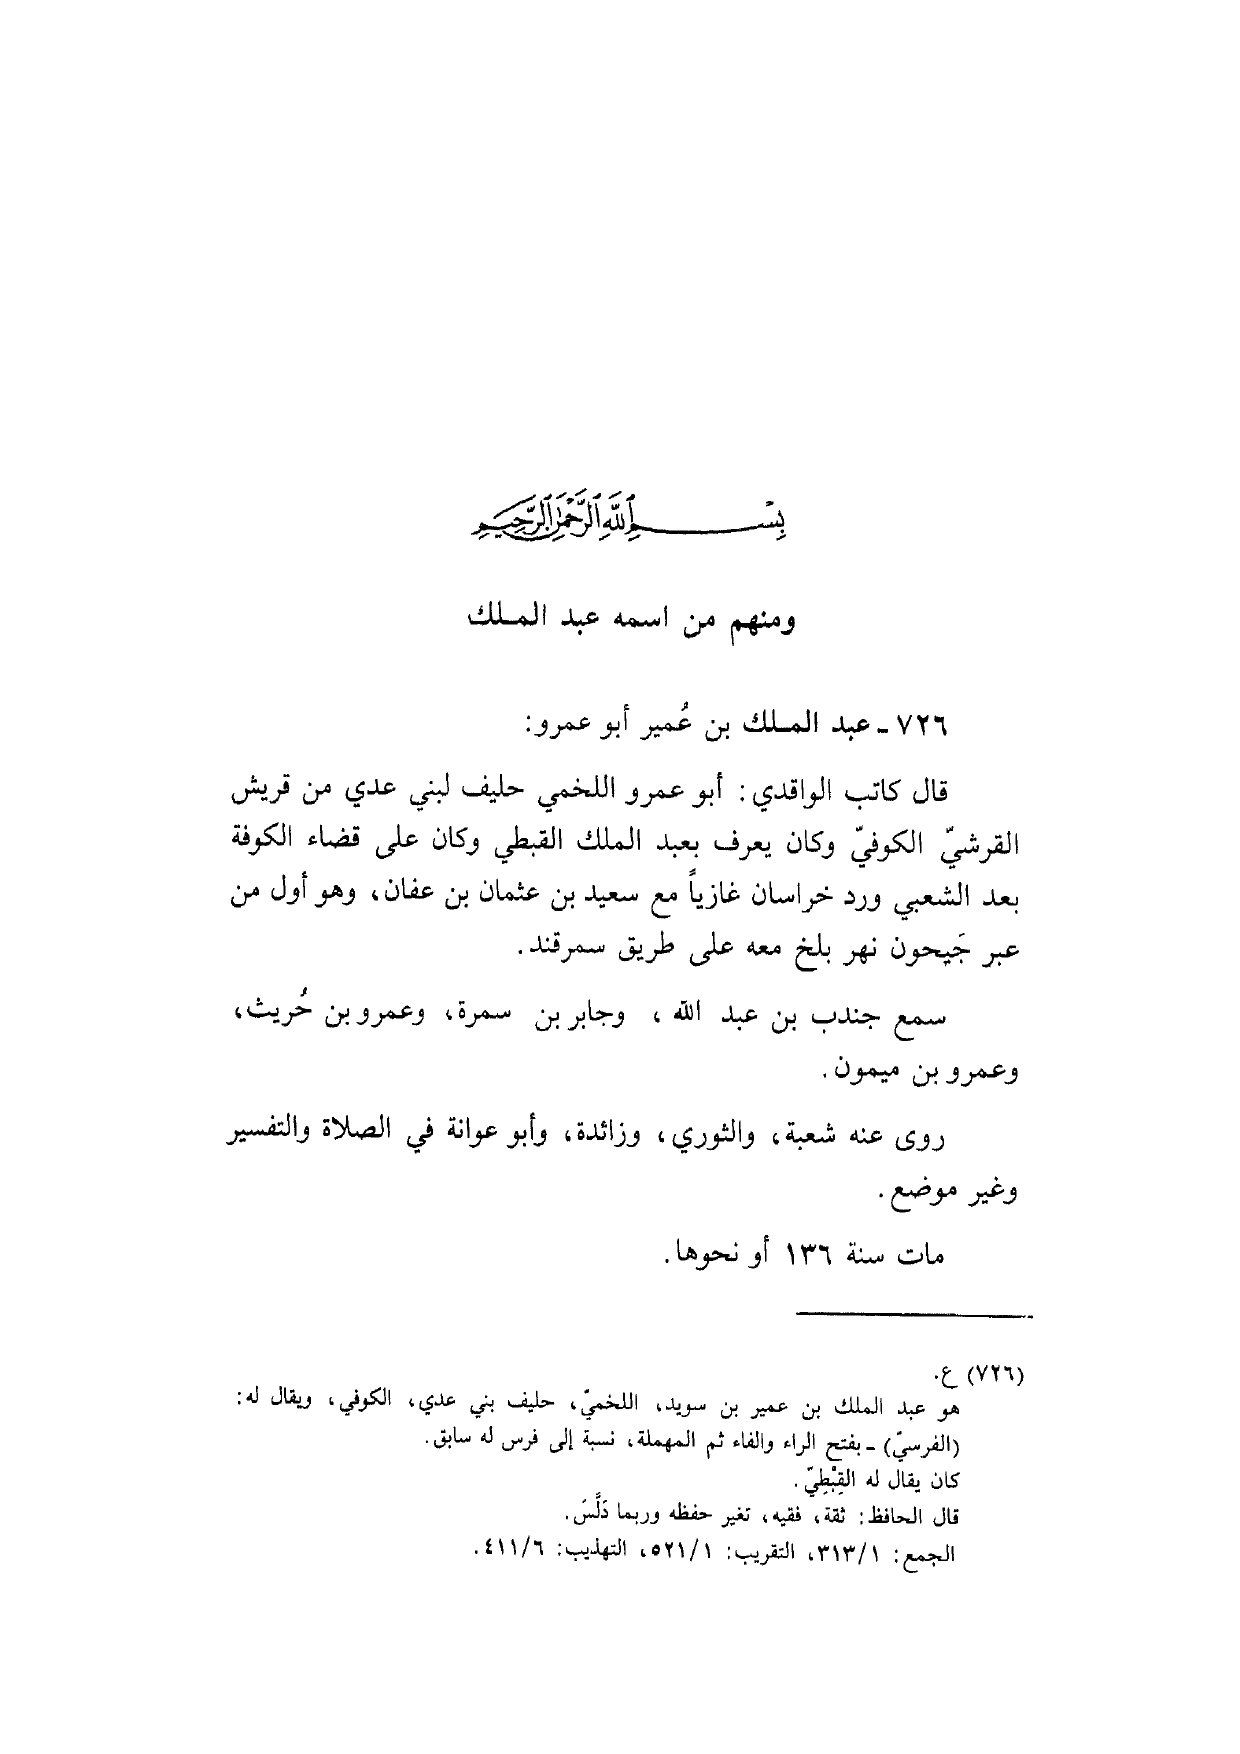 بِسْـــــمِ ٱللَّهِ ٱلرَّحْمَٰنِ ٱلرَّحِيمِ
ومنهم من اسمه عبد الملك
٧٢٦ - عبد الملك بن عُمير أبو عمرو:
قال كاتب الواقدي: أبو عمرو اللخمي حليف لبني عدي من قريش
القرشيّ الكوفيّ وكان يعرف بعبد الملك القبطي وكان على قضاء الكوفة
بعد الشعبي ورد خراسان غازياً مع سعيد بن عثمان بن عفان، وهو أول من
عبر جَيحون نهر بلخ معه على طريق سمرقند.
سمع جندب بن عبد الله ، وجابر بن سمرة، وعمرو بن حُريث،
وعمرو بن ميمون.
روى عنه شعبة، والثوري، وزائدة، وأبو عوانة في الصلاة والتفسير
وغير موضع.
مات سنة ١٣٦ أو نحوها.
(٧٢٦) ع.
هو عبد الملك بن عمير بن سويد، اللخميّ، حليف بني عدي، الكوفي، ويقال له:
(الفرسيّ) - بفتح الراء والفاء ثم المهملة، نسبة إلى فرس له سابق.
كان يقال له القِبْطِيّ.
قال الحافظ: ثقة، فقيه، تغير حفظه وربما دَلَّسَ.
الجمع: ٣١٣/١، التقريب: ٥٢١/١، التهذيب: ٤١١/٦.